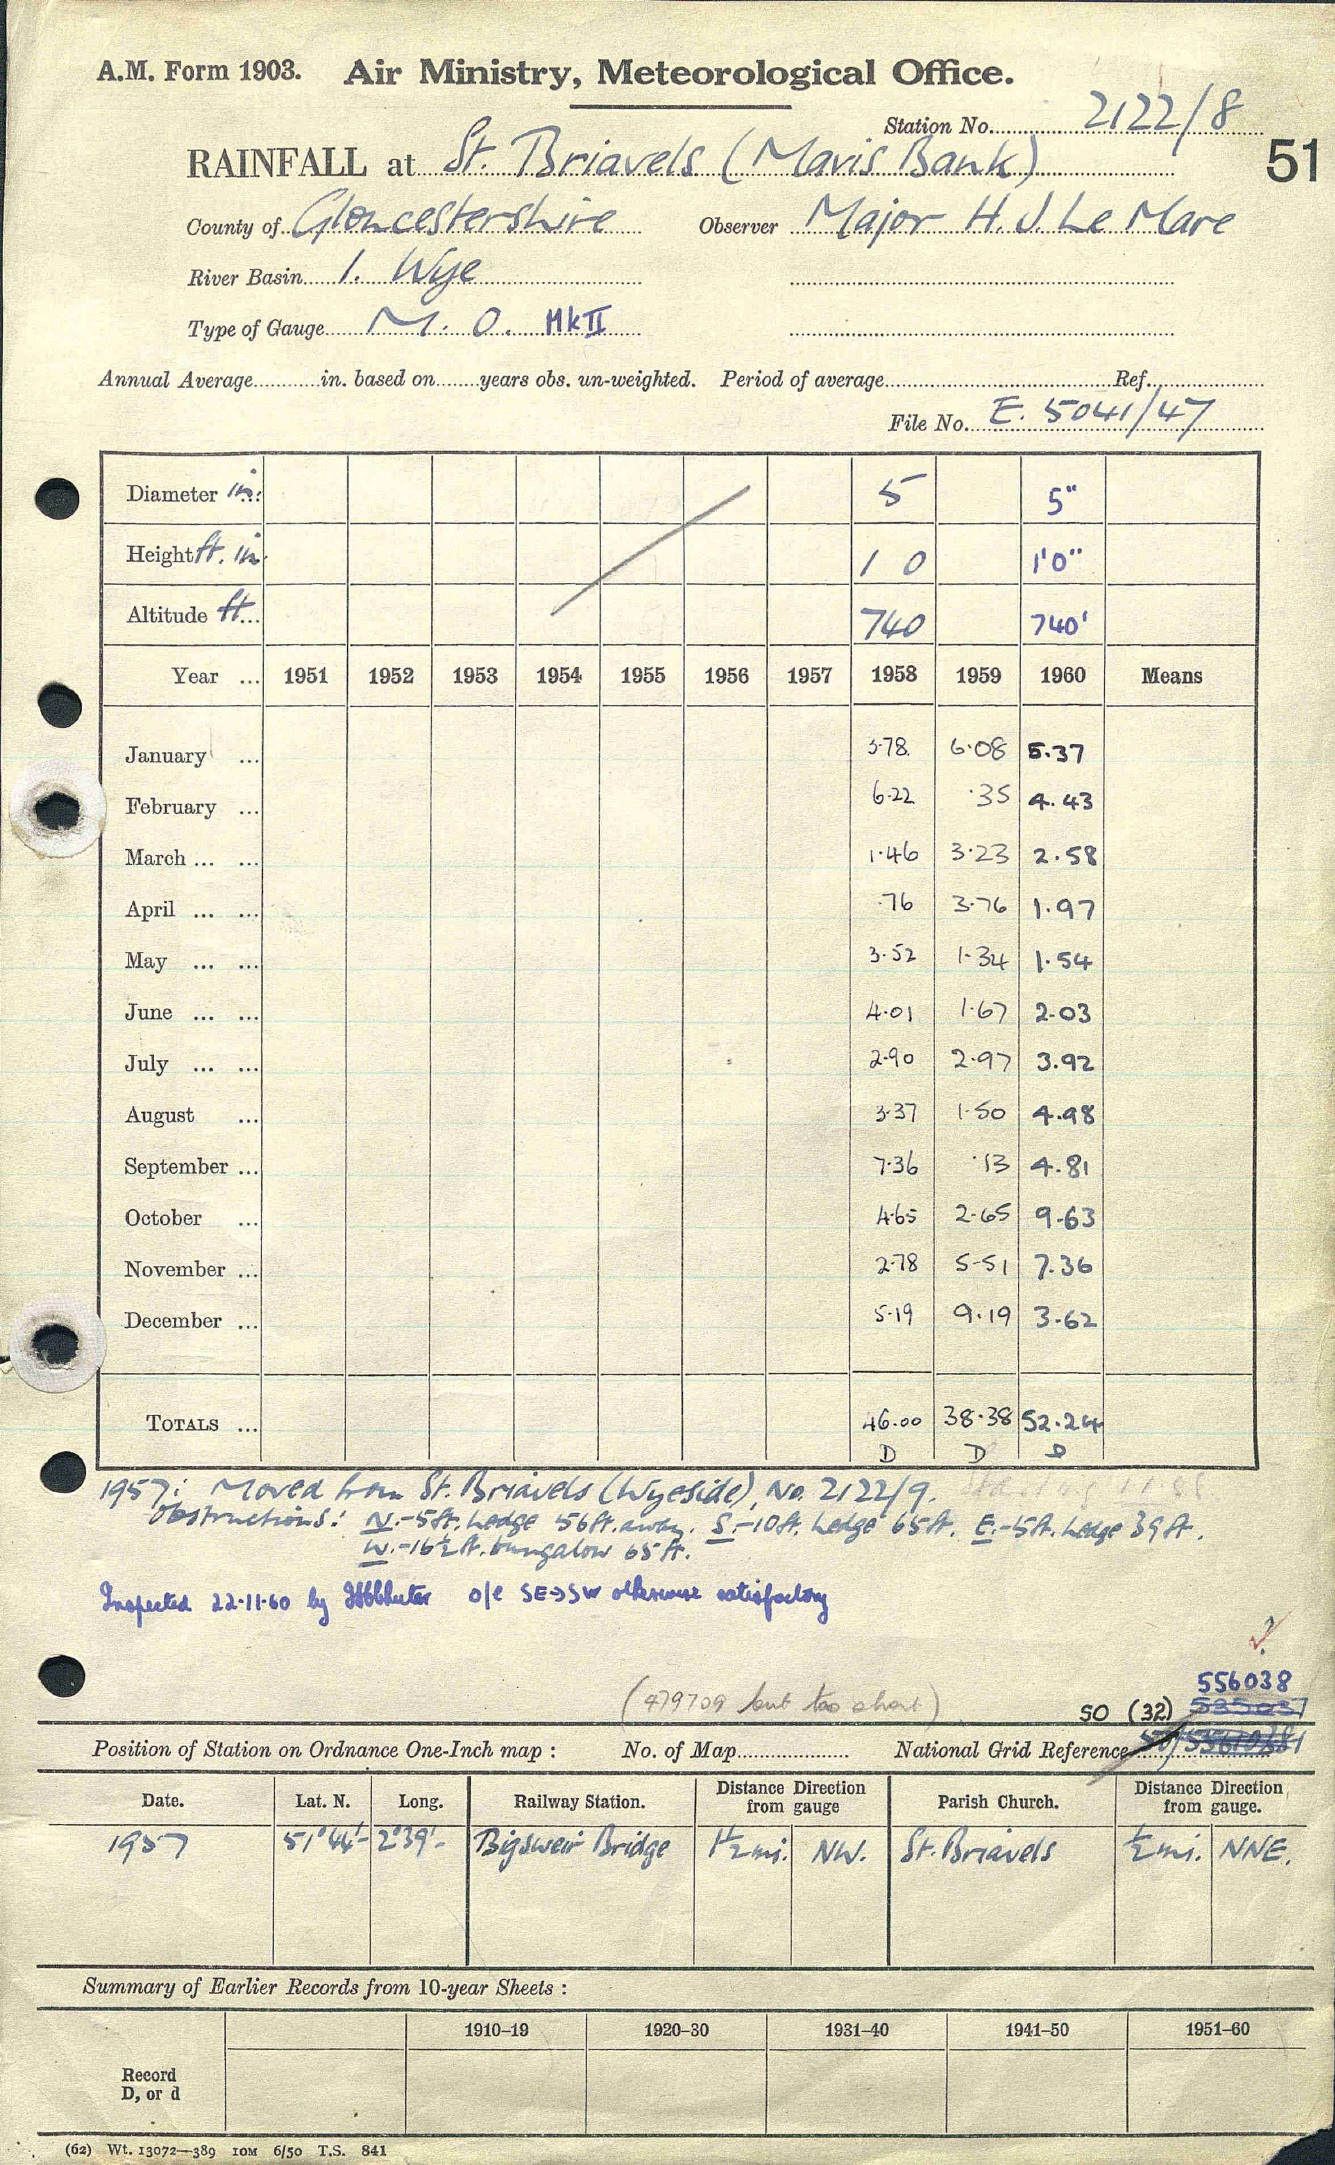 A.M. Form 1903. Air Ministry, Meteorological Office.
Station No. 2122/8
RAINFALL at St. Briavels (Mavis Bank) 51
County of Gloucestershire Observer Major H. J. Le Mare
River Basin 1. Wye
Type of Gauge M. O. Mk II
Annual Average in. based on years obs. un-weighted. Period of average Ref.
File No. E. 5041/47
Diameter in. 5 5"
Height ft. in. 1 0 1'0"
Altitude ft. 740 740'
Year ... 1951 1952 1953 1954 1955 1956 1957 1958 1959 1960 Means
January ... 3.78 6.08 5.37
February ... 6.22 .35 4.43
March ... ... 1.46 3.23 2.58
April ... ... .76 3.76 1.97
May ... ... 3.52 1.34 1.54
June ... ... 4.01 1.67 2.03
July ... ... 2.90 2.97 3.92
August ... 3.37 1.50 4.98
September ... 7.36 .13 4.81
October ... 4.65 2.65 9.63
November ... 2.78 5.51 7.36
December ... 5.19 9.19 3.62
TOTALS ... 46.00 38.38 52.24
D D D
1957: Moved from St. Briavels (Wyeside), No. 2122/9.
Obstructions: N.-5ft. hedge 56ft. away. S.-10ft. hedge 65ft. E.-5ft. hedge 39ft.
W.-16½ft. bungalow 65ft.
Inspected 22.11.60 by o/e SE→SW otherwise satisfactory
?
556038
(479709 but too short) SO (32) 535037
Position of Station on Ordnance One-Inch map : No. of Map National Grid Reference
Date. Lat. N. Long. Railway Station. Distance from gauge Direction Parish Church. Distance from gauge. Direction
1957 51°44'- 2°39'- Bigsweir Bridge 1½mi. NW. St. Briavels ½mi. NNE.
Summary of Earlier Records from 10-year Sheets :
1910–19 1920–30 1931–40 1941–50 1951–60
Record
D, or d
(62) Wt. 13072—389 10M 6/50 T.S. 841